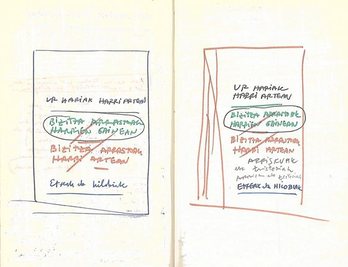 UR HARIAK HARRI ARTEAN
BIZITZA ARRASTOAK
HARRIEN GAINEAN
BIZITZA ARRASTOAK
HARRI ARTEAN
Etxeak da hilobiak
UR HARIAK
HARRI ARTEAN
BIZITZA ARRASTOAK
HARRIEN GAINEAN
BIZITZA ARRASTOAK
HARRI ARTEAN
ETXEAK da HILOBIAK